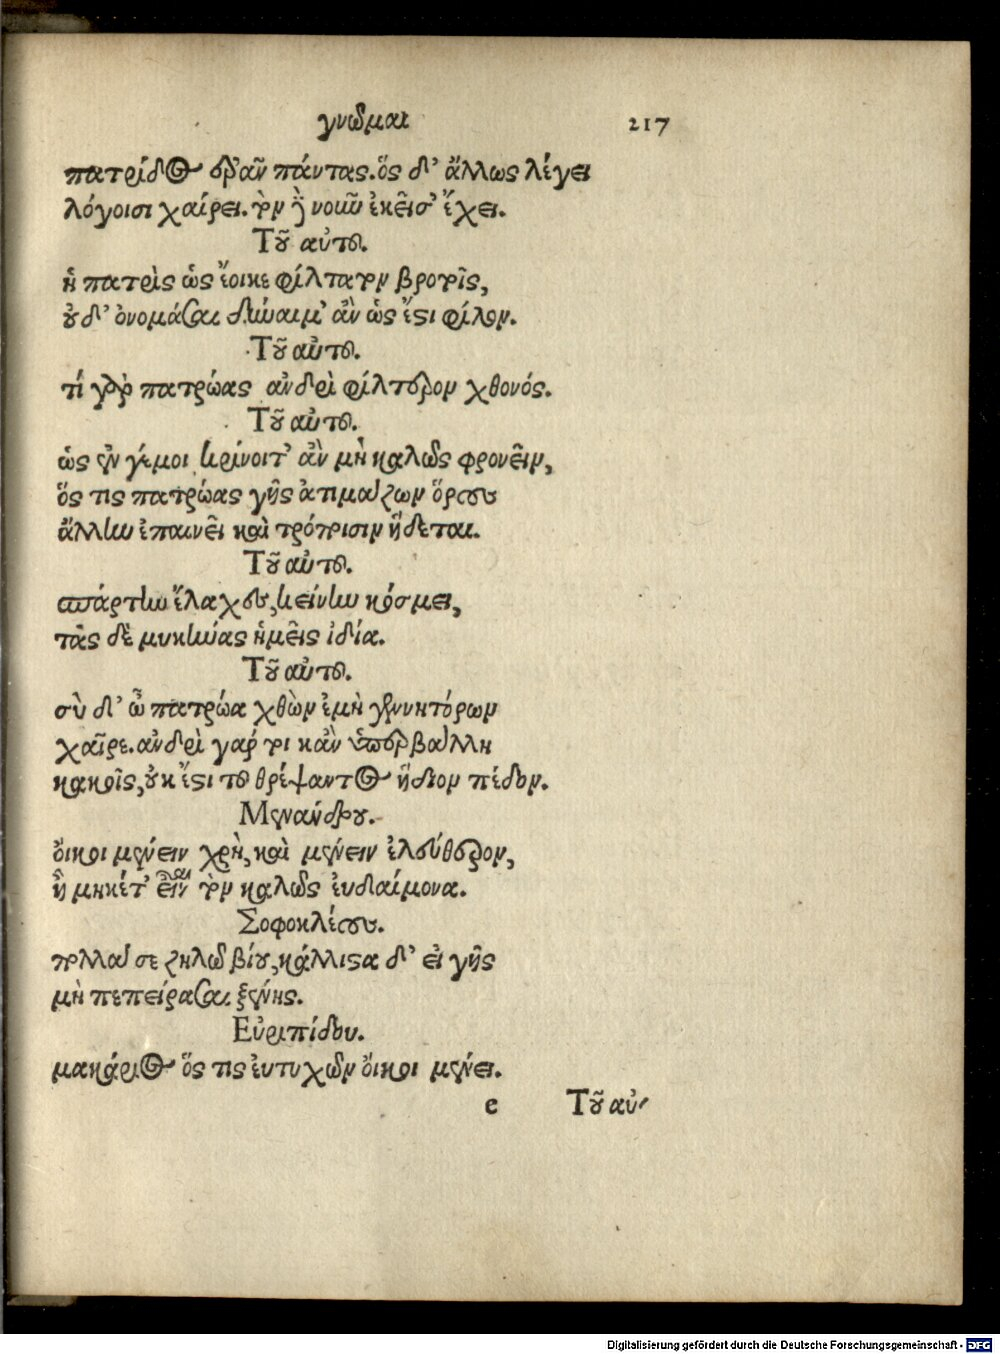 γνῶμαι 217
πατρίδος ἐρᾶν πάντας. ὃς δ' ἄλλως λέγει
λόγοισι χαίρει. τὸν δὲ νοῦν ἐκεῖσ' ἔχει.
Τοῦ αὐτοῦ.
ἡ πατρὶς ὡς ἔοικε φίλτατον βροτοῖς,
οὐδ' ὀνομάσαι δυναίμ' ἂν ὡς ἔστι φίλον.
Τοῦ αὐτοῦ.
τί γὰρ πατρώας ἀνδρὶ φίλτερον χθονός.
Τοῦ αὐτοῦ.
ὡς ἔν γέμοι κρίνοιτ' ἂν μὴ καλῶς φρονεῖν,
ὅς τις πατρώας γῆς ἀτιμάζων ὅρους
ἄλλην ἐπαινεῖ καὶ τρόποισιν ἥδεται.
Τοῦ αὐτοῦ.
σπάρτην ἔλαχες, κείνην κόσμει,
τὰς δὲ μυκήνας ἡμεῖς ἰδία.
Τοῦ αὐτοῦ.
σὺ δ' ὦ πατρώα χθὼν ἐμὴ γεννητόρων
χαῖρε. ἀνδρὶ γάρ τοι κἂν ὑπερβάλλη
κακοῖς, οὐκ ἔστι τοῦ θρέψαντος ἥδιον πέδον.
Μενάνδρου.
ὄικοι μένειν χρὴ, καὶ μένειν ἐλεύθερον,
ἢ μηκέτ' εἶναι τὸν καλῶς ἐυδαίμονα.
Σοφοκλέους.
πολλά σε ζηλῶ βίου, κάλλιστα δ' εἰ γῆς
μὴ πεπείρασαι ξένης.
Εὐριπίδου.
μακάριος ὅς τις ἐυτυχῶν ὄικοι μένει.
e Τοῦ αὐ-
Digitalisierung gefördert durch die Deutsche Forschungsgemeinschaft - DFG